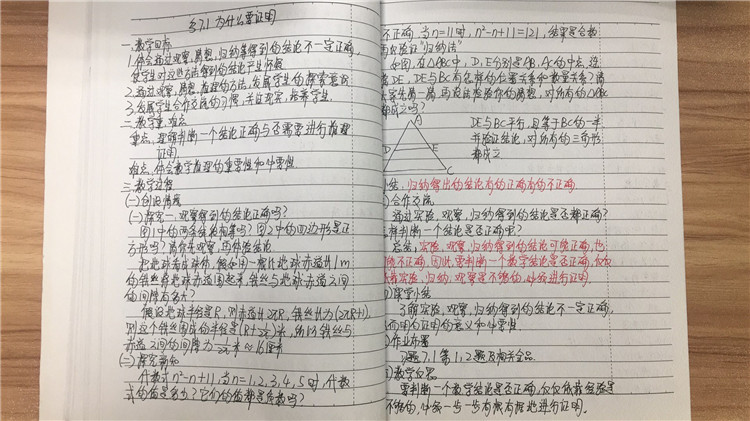 §7.1 为什么要证明
一、教学目标
1. 体会通过观察、猜想、归纳等得到的结论不一定正确
使学生对这些方法得到的结论产生怀疑
2. 通过观察、猜想、推理的方法,发展学生的探索意识
3. 发展学生合作交流的习惯,关注现实,培养学生.
二、教学重、难点
重点:理解判断一个结论正确与否需要进行推理
证明.
难点:体会数学推理的重要性和必要性.
三、教学过程
(一)创设情境
(一)探究一:观察得到的结论正确吗?
图1中两条线段相等吗?图2中的四边形是正
方形吗?请你先观察,再体验结论
把地球看成球体,假如用一根比地球赤道长1m
的铁丝将地球赤道围起来,铁丝与地球赤道之间
的间隙有多大?
假设地球半径是R,则赤道长2πR,铁丝长为(2πR+1),
则这个铁丝围成的半径是(R+1/2π)米,所以铁丝与
赤道之间的间隙为1/2π米≈16厘米
(二)探究新知
代数式n²-n+11,当n=1,2,3,4,5时,代数
式的值是多少?它们的值都是质数吗?
不正确,当n=11时,n²-n+11=121,结果是合数
再次验证"归纳法"
如图,在△ABC中,D,E分别是AB,AC的中点,连
接DE,DE与BC有怎样的位置关系和数量关系?请
你先猜一猜,再设法检验你的猜想,对所有的△ABC
都成立吗?
A
D E
C
DE与BC平行,且等于BC的一半
并验证结论,对所有的三角形
都成立
小结:归纳得出的结论有的正确有的不正确.
合作交流
通过实验、观察、归纳得到的结论是否都正确?
怎样判断一个结论是正确呢?
总结:实验、观察、归纳得到的结论可能正确,也
可能不正确.因此,要判断一个数学结论是否正确,仅仅
依靠实验、归纳、观察是不够的,必须进行证明.
课堂小结
了解实验、观察、归纳得到的结论不一定正确,
从而明白证明的意义和必要性
作业布置
习题7.1第1,2题及相关全品.
教学反思
要判断一个数学结论是否正确,仅仅依靠经验是
不够的,必须一步一步有根有据地进行证明.